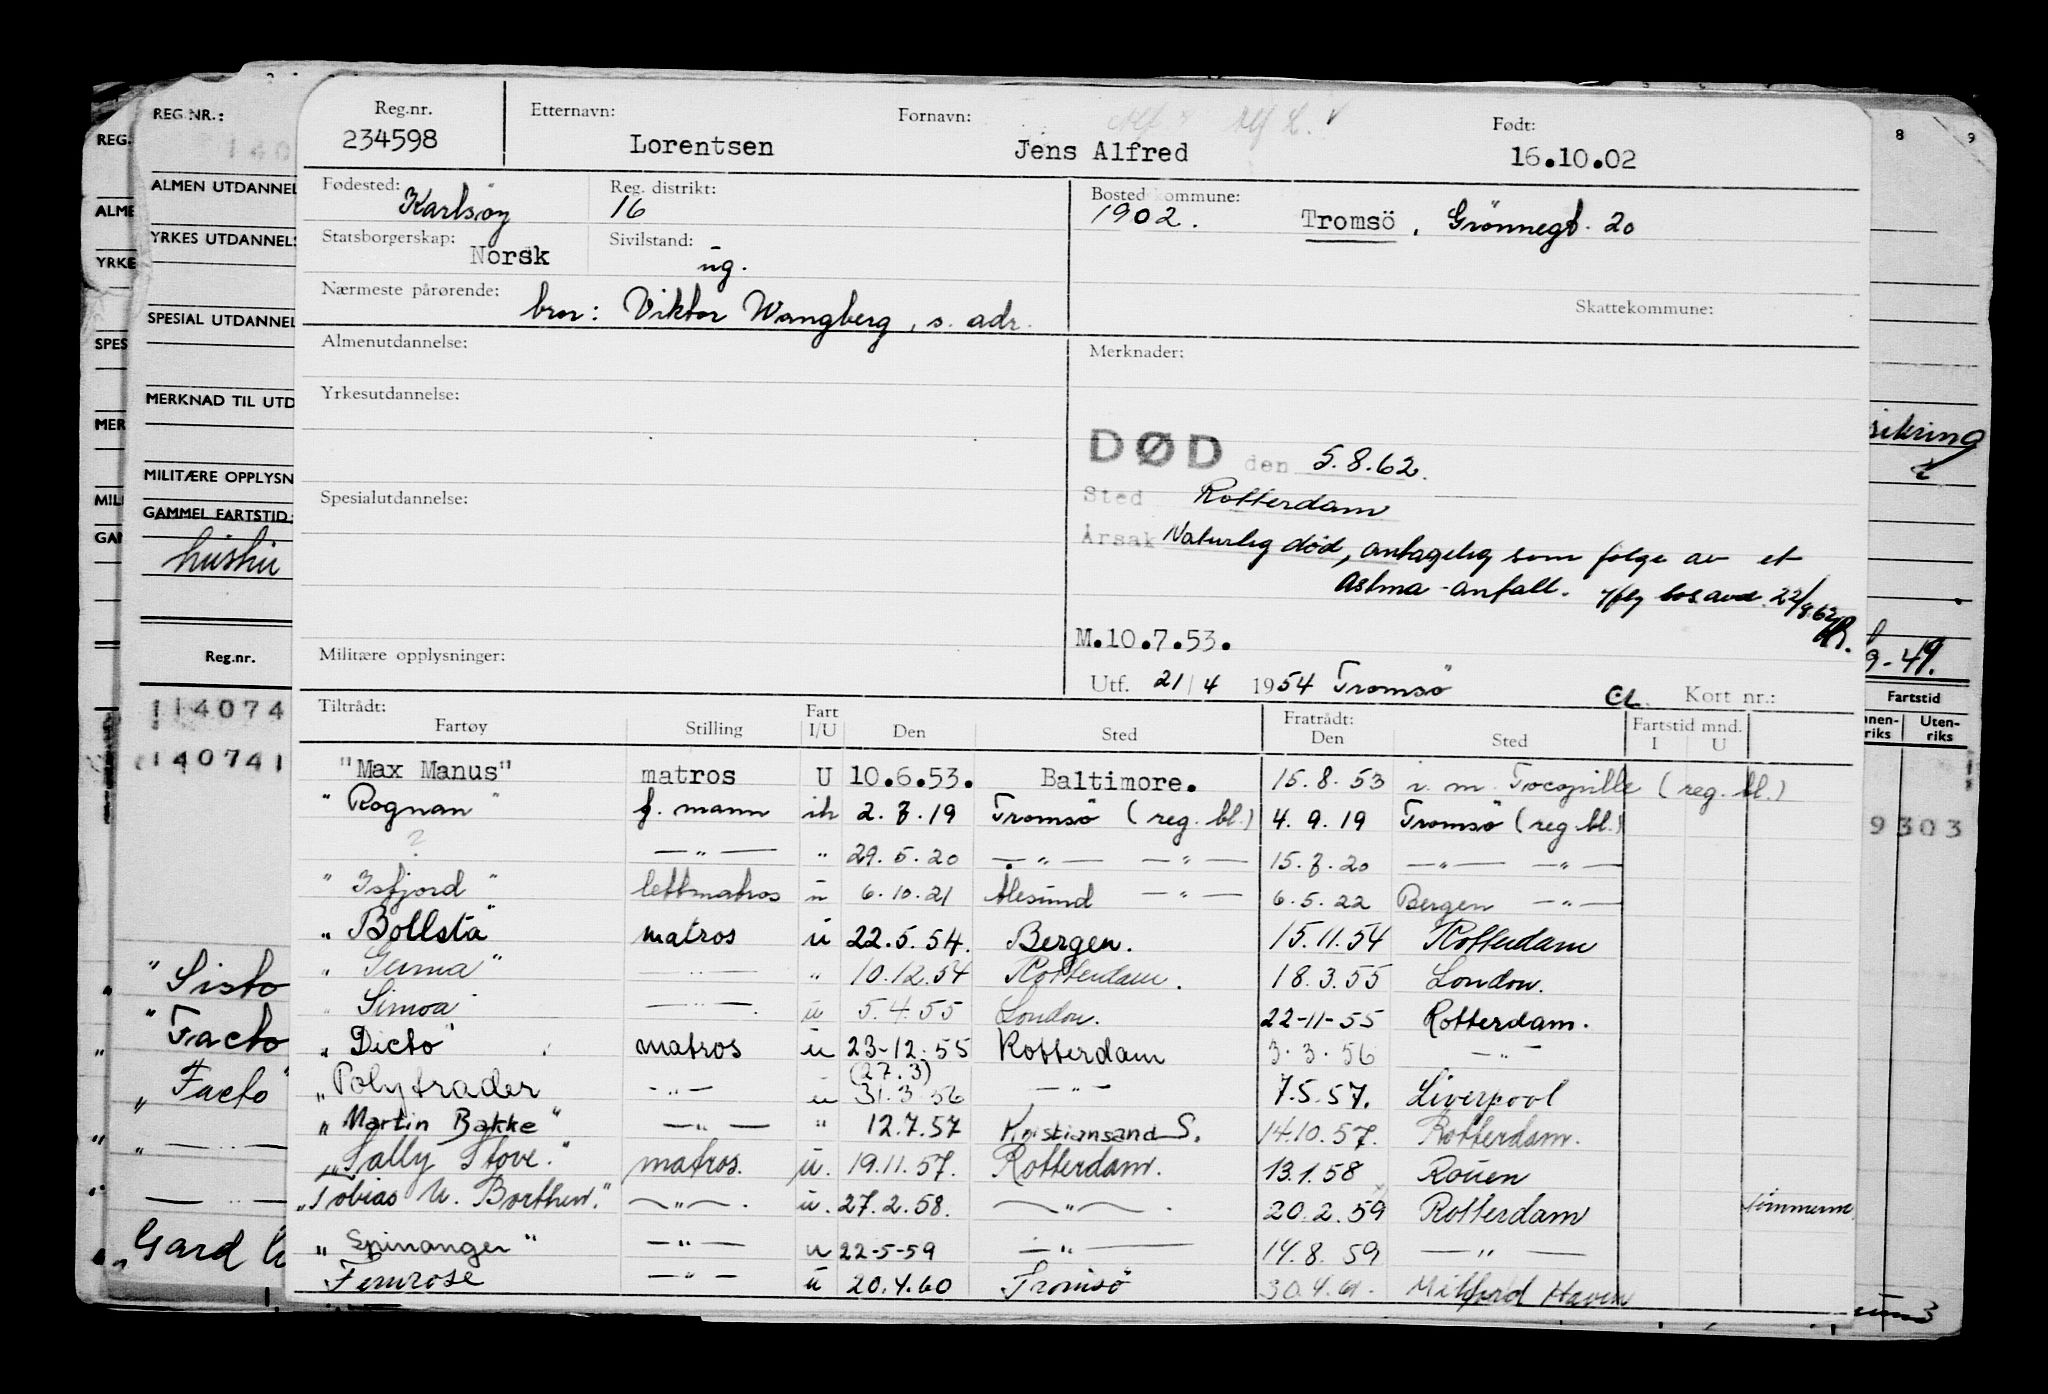 Reg.nr. Etternavn: Fornavn: Født:
234598 Lorentsen Jens Alfred 16.10.02
Fødested: Karlsöy Reg. distrikt: 16 Bosted kommune: 1902. Tromsö, Grönnegt. 20
Statsborgerskap: Norsk Sivilstand: ug.
Nærmeste pårørende: bror: Viktor Wangberg, s. adr. Skattekommune:
Almenutdannelse: Merknader:
Yrkesutdannelse:
DØD den 5.8.62.
Spesialutdannelse: Sted Rotterdam
Årsak Naturlig död, antagelig som følge av et
astma-anfall. 22/8.62
M.10.7.53.
Militære opplysninger: Utf. 21/4 1954 Tromsö Kort nr.:
Tiltrådt: Fratrådt: Fartstid mnd.
Fartøy Stilling Fart I/U Den Sted Den Sted I U
"Max Manus" matros U 10.6.53. Baltimore. 15.8.53 (reg. bl.)
"Rognan" f. mann ih 2.7.19 Tromsö (reg. bl.) 4.9.19 Tromsö (reg bl.)
? —"— " 29.5.20 —"— —"— 15.7.20 —"— —"—
"Isfjord" lettmatros u 6.10.21 Ålesund —"— 6.5.22 Bergen —"—
"Bollsta" matros u 22.5.54. Bergen. 15.11.54 Rotterdam
" " —"— " 10.12.54 Rotterdam. 18.3.55 London.
"Simoa" —"— u 5.4.55 London. 22-11-55 Rotterdam.
"Dicto" matros u 23-12-55 Rotterdam 3.3.56 —"—
"Polytrader —"— u (27.3) 31.3 56 —"— 7.5.57. Liverpool
"Martin Bakke" —"— " 12.7.57 Kristiansand S. 14.10.57. Rotterdam.
"Sally Stove." matros. u. 19.11.57. Rotterdam. 13.1.58 Rouen
"Tobias U. Borthen." —"—. u. 27.2.58. —"—. 20.2.59 Rotterdam
"Spinanger" —"— u 22-5-59 —"— 14.8.59 —"—
Fernrose —"— u 20.4.60 Tromsö 30.4.61. Milford Haven
REG.NR.:
ALMEN UTDANNEL
YRKES UTDANNELS
SPESIAL UTDANNEL
MERKNAD TIL UTD
MILITÆRE OPPLYSN
GAMMEL FARTSTID:
Reg.nr.
114074
140741
"Sisto
"Facto
"Facto"
"Gard
REG.
ALME
YRKE
SPES
MER
MILI
GAN
8 9
sikring
9-49.
Fartstid
nnen-riks Uten-riks
9303